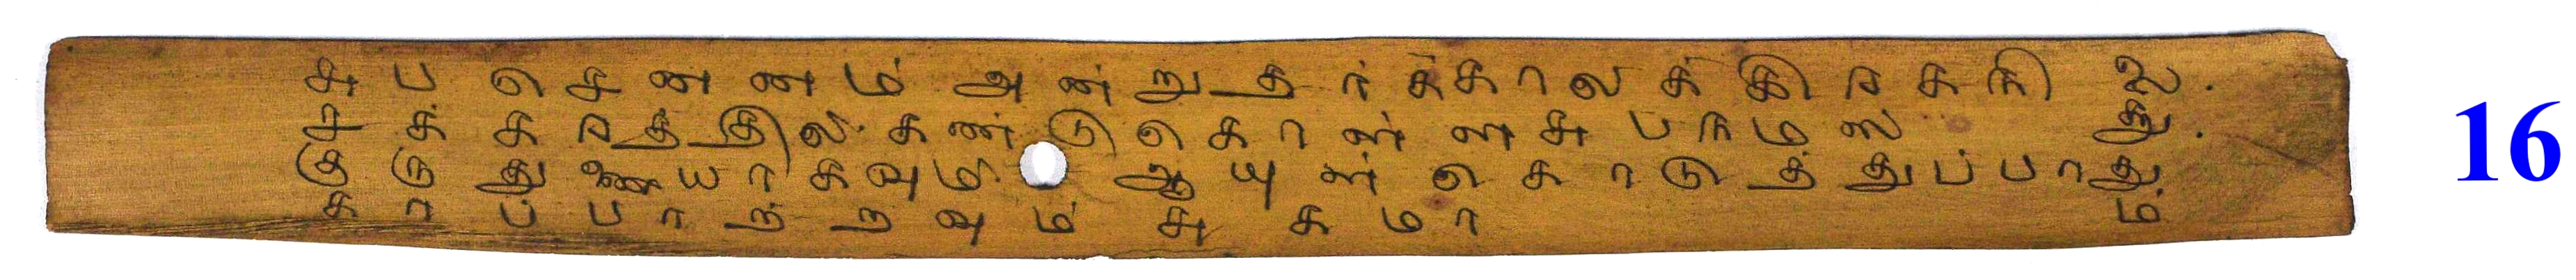 சுபசெனனம் அன்றுதர்க்காலக்கிரகநிலை.
சக்கரத்தில் கண்டுகொள்ள சுபநமஸ்து.
குருதுணையாகவும் ஆயுள்கொடுத்துப்பாது
காப்பாற்றவும் சுகமாம்
16